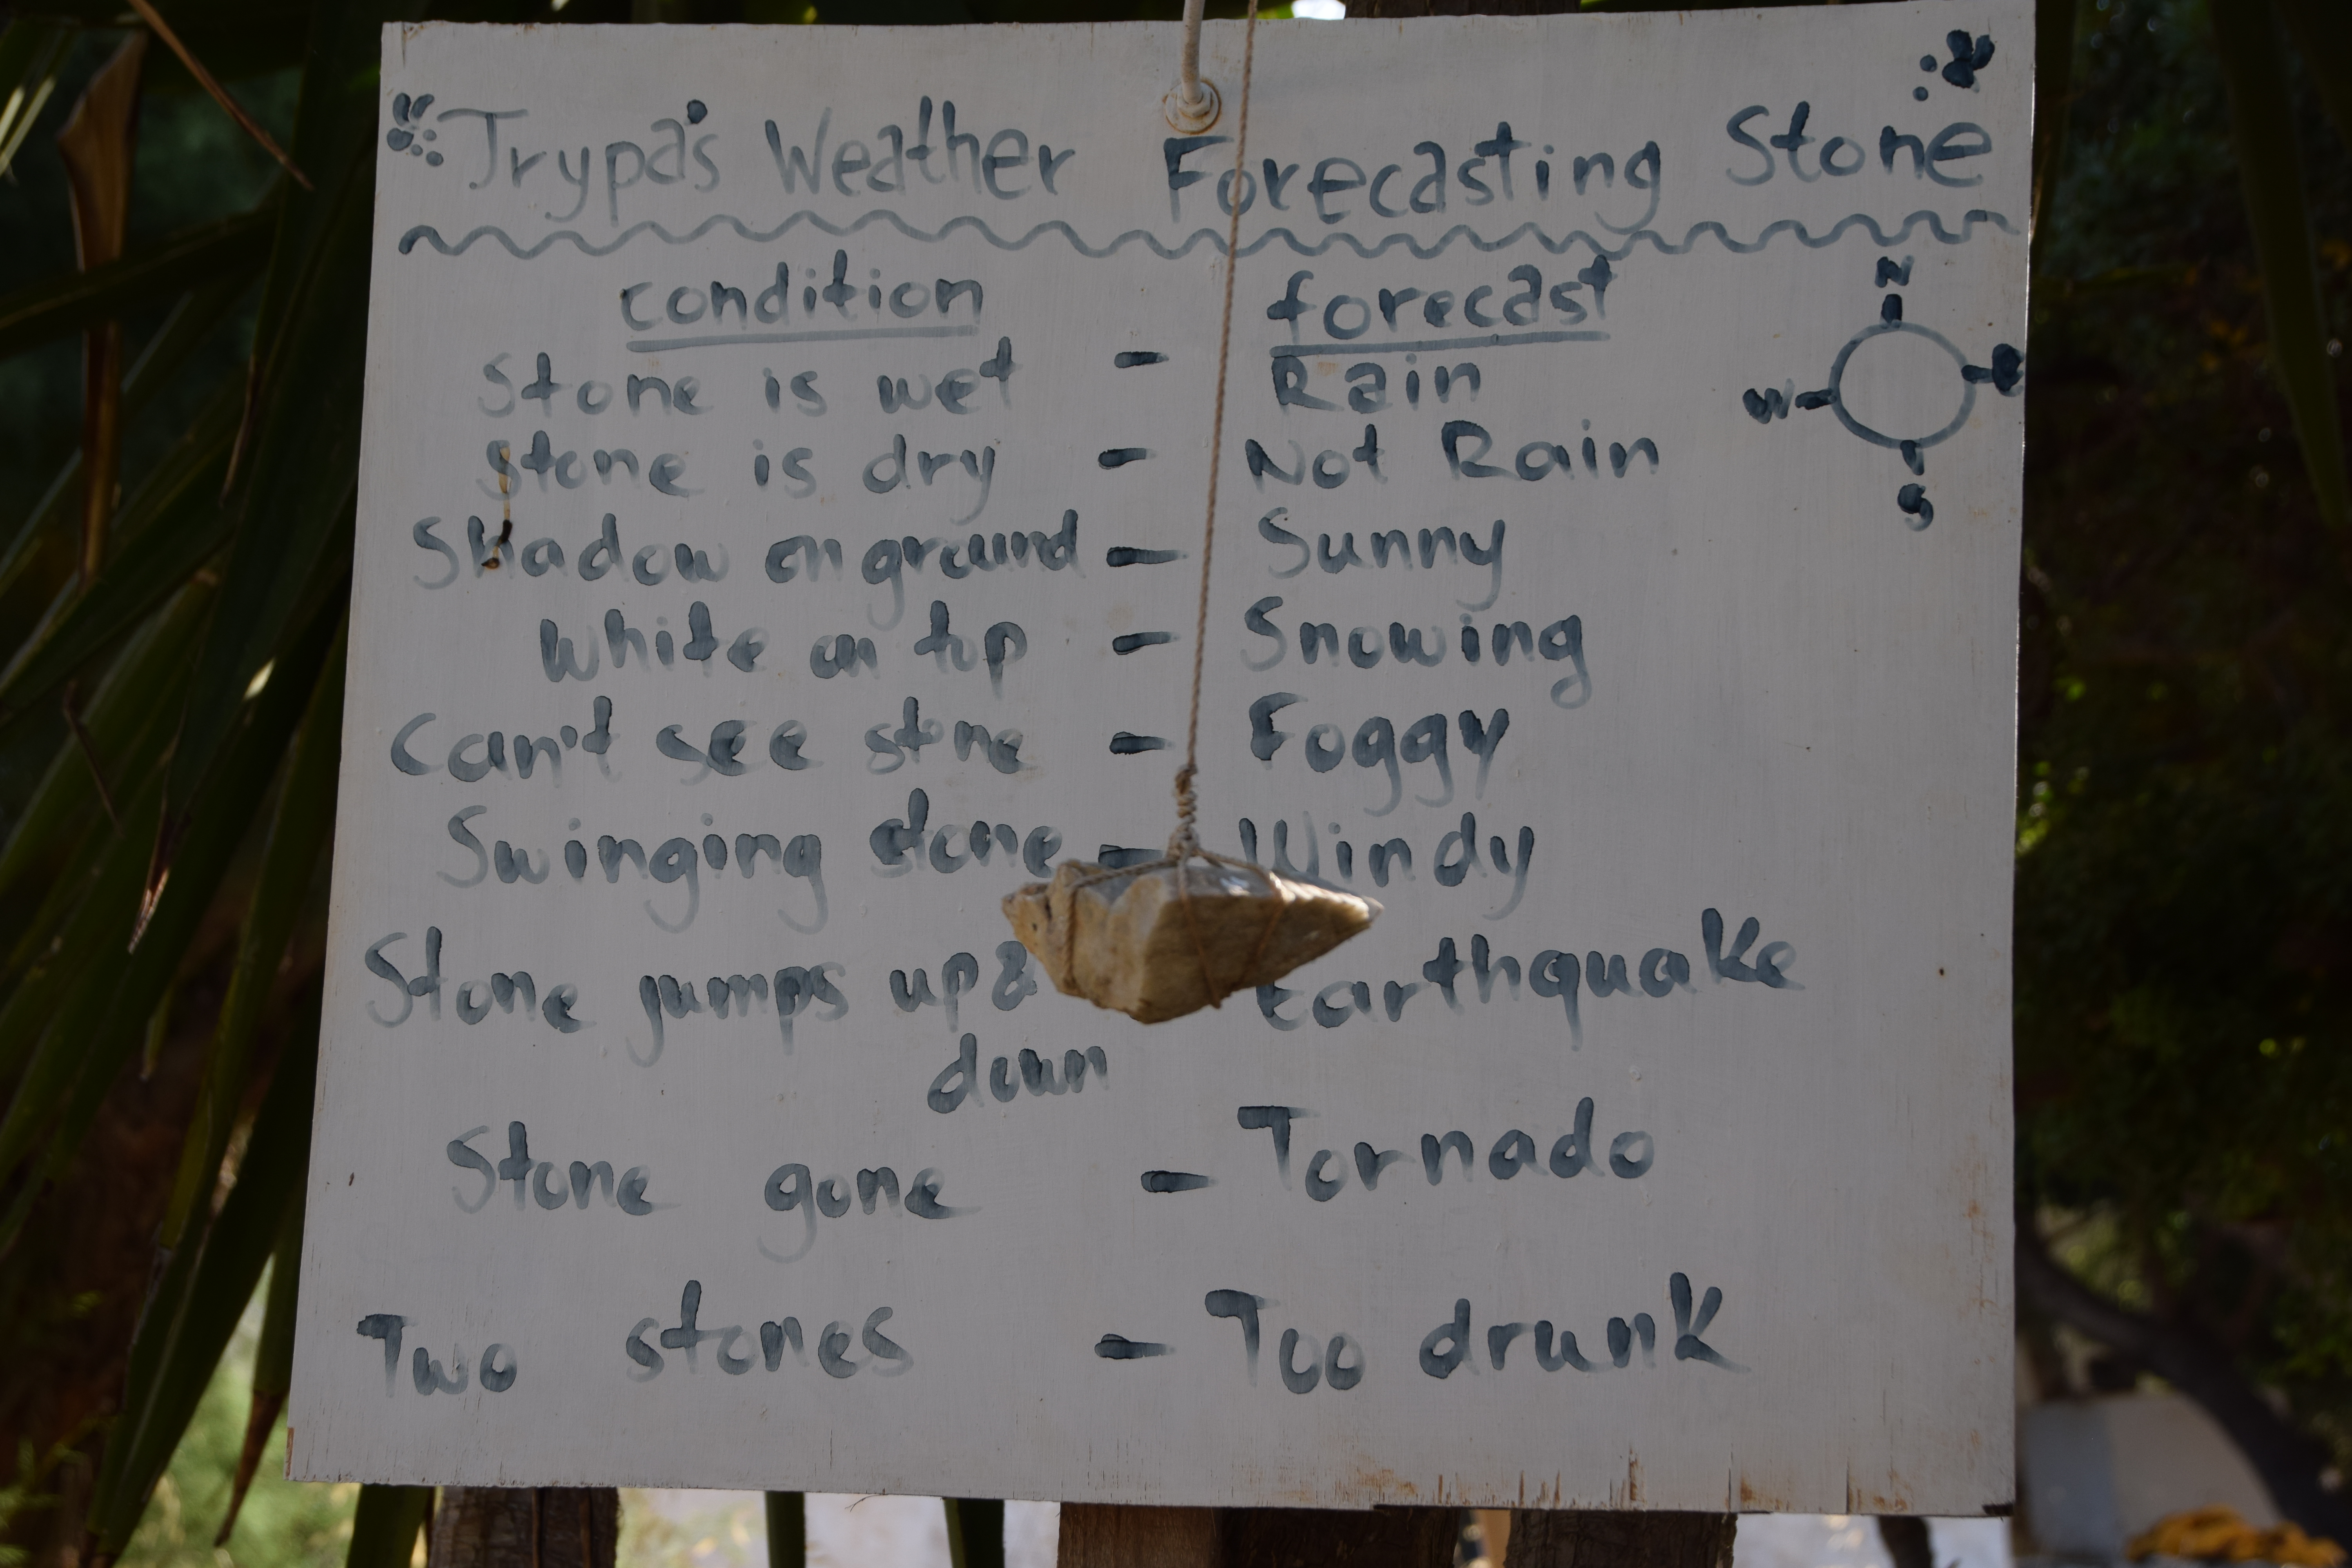 Trypa's Weather Forecasting Stone
condition - forecast
N
W E
S
Stone is wet - Rain
Stone is dry - Not Rain
Shadow on ground - Sunny
White on top - Snowing
Can't see stone - Foggy
Swinging stone - Windy
Stone jumps up & Earthquake
down
Stone gone - Tornado
Two stones - Too drunk